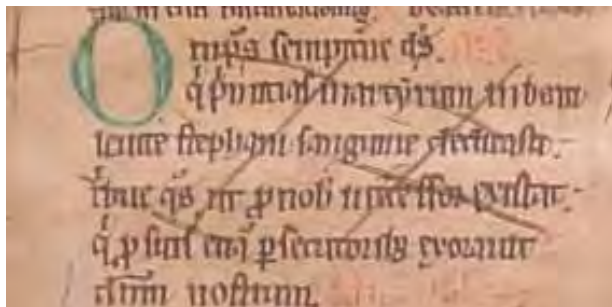 Omps sempitne ds.
q p'mitias martyrum in beati
leuite stephani sanguine dedicasti.
tbue qs ut p nobis intcessor existat.
q p suis etia psecutorib exorauit
dnm nostrum.